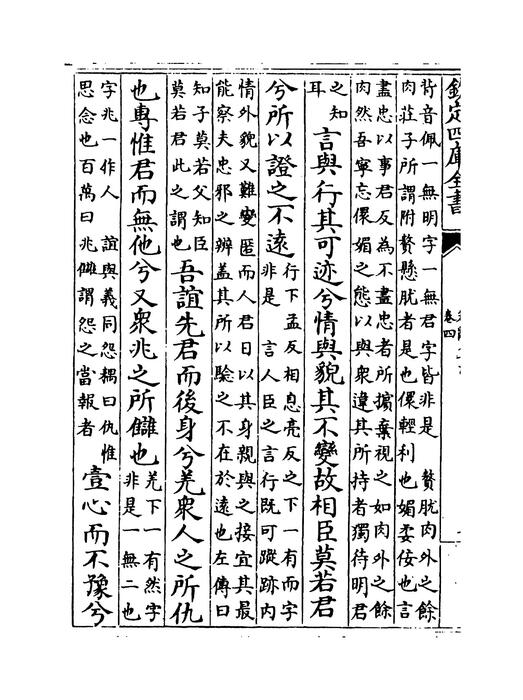 欽定四庫全書
卷四
背音佩一無明字一無君字皆非是　贅肬肉外之餘
肉莊子所謂附贅懸肬者是也儇輕利也媚柔佞也言
盡忠以事君反為不盡忠者所擯棄視之如肉外之餘
肉然吾寧忘儇媚之態以與衆違其所持者獨待明君
之知
耳
言與行其可迹兮情與貌其不變故相臣莫若君
兮所以證之不遠
行下孟反相息亮反之下一有而字
非是　言人臣之言行既可蹤跡内
情外貌又難變匿而人君日以其身親與之接宜其最
能察夫忠邪之辨蓋其所以驗之不在於遠也左傳曰
知子莫若父知臣
莫若君此之謂也
吾誼先君而後身兮羌衆人之所仇
也專惟君而無他兮又衆兆之所讎也
羌下一有然字
非是一無二也
字兆一作人　誼與義同怨耦曰仇惟
思念也百萬曰兆讎謂怨之當報者
壹心而不豫兮